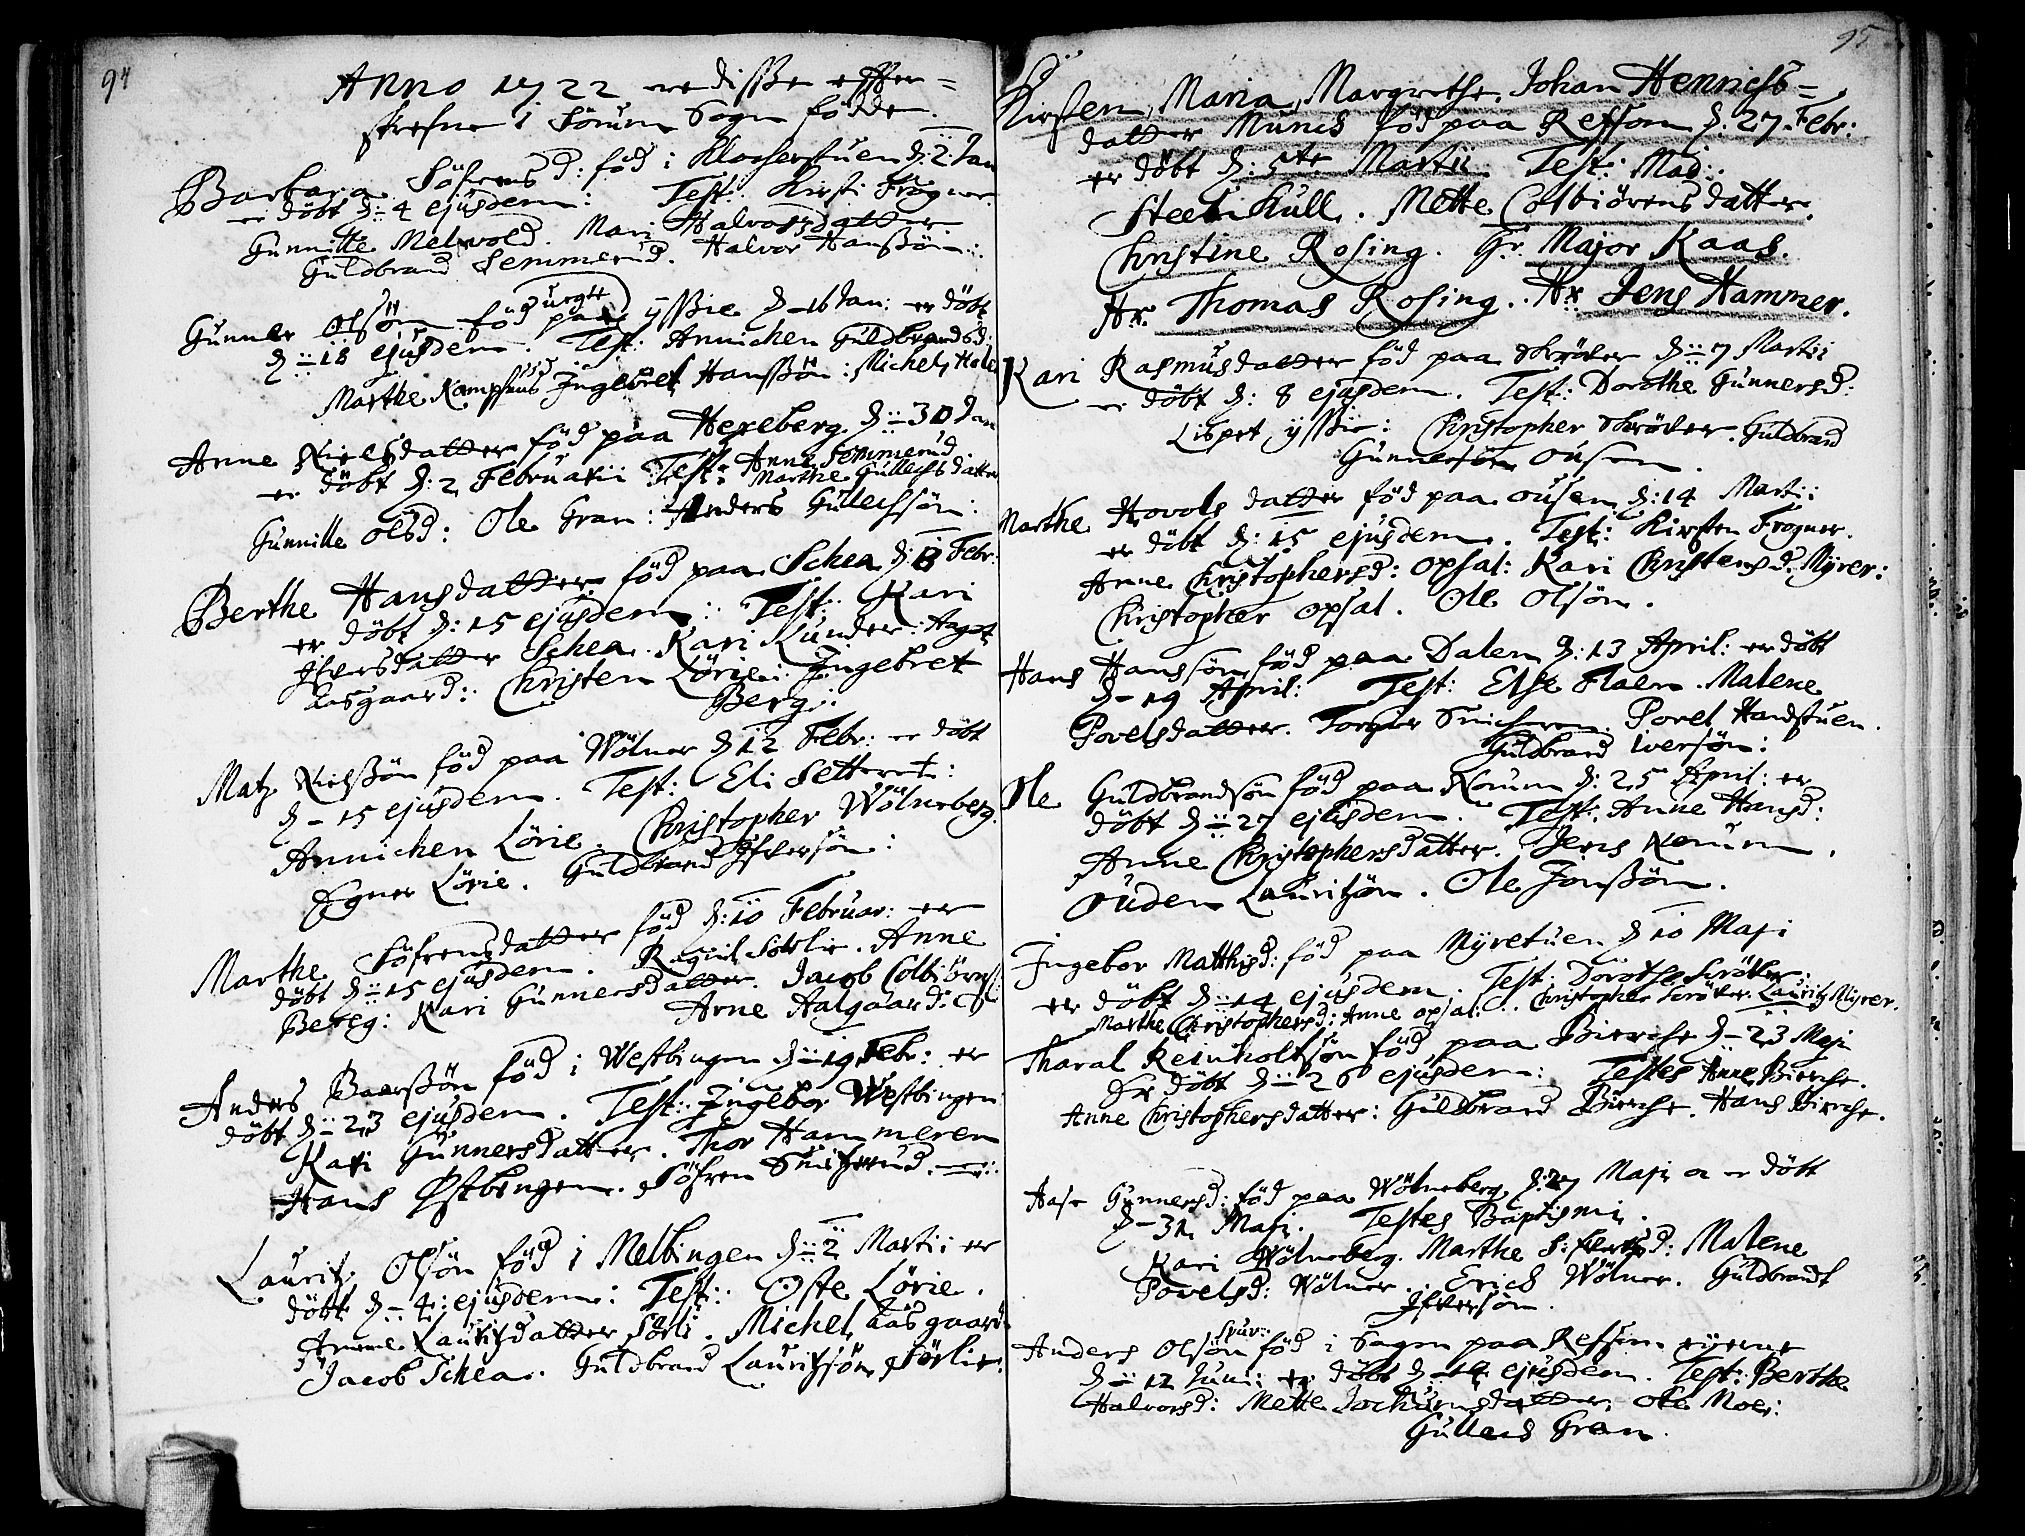 94
Anno 1722 ere disse effter=
skrefne i Sörum Sogn födde.
Barbara Söfrensd: föd i Klocherstuen d: 2: Jan
er döbt d: 4 ejusdem: Test: Kirsti Frogner
Gunnille Melvold. Mari Halvorsdatter
Guldbrand Semmerud. Halvor Hanssön:
Gunner Olsön föd paa yssie d 16 Jan: er döbt
d 18 ejusdem. Test: Annichen Guldbrandsd:
Marthe Ingebret Hanssön: Michel Hole
Anne Nielsdatter föd paa Hexeberg d: 30 Jan
er döbt d: 2 Februarii Test: Anne Semmerud.
Marthe Gullechsdatter
Gunnille Olsd: Ole Gran: Anders Gullechsön:
Berthe Hansdatter föd paa Schea d: 8 Febr:
er döbt d: 15 ejusdem: Test: Kari
Ifversdatter Schea. Kari Kunder: Aagot
Aasgaard: Christen Lörie: Ingebret
Berg:
Matz Nielssön föd paa Wölner d 12 Febr: er döbt
d 15 ejusdem. Test: Eli
Annichen Lörie. Christopher Wölneberg.
Egner Lörie. Guldbrand Ifversön:
Marthe Söfrensdatter föd d: 10 Februar: er
döbt d: 15 ejusdem. Anne
Bereg: Kari Gunnersdatter. Jacob Colbiörns:
Arne Aalgaard:
Anders Baarssön föd i Westbingen d 19 Febr: er
döbt d: 23 ejusdem. Test: Ingebor Westbingen
Kari Gunnersdatter. Thor Hammeren
Hans Østbingen. Söfren
Lauritz Olsön föd i Melbingen d: 2 Martii er
döbt d 4 ejusdem: Test: Oste Lörie.
Anne Lauritzdatter Sörli. Michel Aasgaard
Jacob Schea. Guldbrand Lauritzsön Sörlie:
95
Kirsten, Maria, Margrethe, Johan Henrichs=
datter Munch föd paa Refsom d. 27 Febr:
er döbt d: 5te Martii. Test: Mad:
Steel Kull. Mette Colbiörensdatter.
Christine Rosing. Hr Major Kaas.
Hr. Thomas Rosing. Hr Jens Hammer.
Kari Rasmusdatter föd paa Skröver d: 7 Martii
er döbt d: 8 ejusdem. Test: Dorothe Gunnersd:
Lispet yssie: Christopher Skröver. Guldbrand
Gunnersön Ousen.
Marthe Hovols datter föd paa Ousen d: 14 Martii
er döbt d: 15 ejusdem. Test: Kirsten Frogner.
Anne Christophersd: Opsal: Kari Christensd: Myrer:
Christopher Opsal. Ole Olsön.
Hans Hanssön föd paa Dalen d: 13 April: er döbt
d 19 April: Test: Else Flaen. Malene
Povelsdatter. Torger Povel Handstuen.
Guldbrand Iversön:
Ole Guldbrandsön föd paa Norum d: 25 April: er
döbt d 27 ejusdem. Test: Anne Hansd:
Anne Christophersdatter. Jens Norum.
Ouden Lauritzön. Ole Jonssön.
Ingebor Matthisd: föd paa Myretuen d 10 Maji
er döbt d: 14 ejusdem. Test: Dorothe Skröver:
Marthe Christophersd: Anne Opsal: Christopher Skröver. Lauritz Myrer.
Tharal Reinholtsön föd paa Bierche d 23 Maji
Er döbt d: 26 ejusdem: Testes Anne Bierche.
Anne Christophersdatter: Guldbrand Bierche. Hans Bierche.
Gunnersd: föd paa Wölneberg d: 27 Maji er döbt
d 31 Maji. Testes Baptismi.
Kari Wölneberg. Marthe Malene
Povelsd: Wölner. Erich Wölner. Guldbrandt
Ifversön.
Anders Olsön föd i Sogn paa Refsom eyerne
d 12 Juni: er döbt d 14 ejusdem. Test: Berthe
Halvorsd: Mette Jochumsdatter. Ole Moe:
Gullech Gran.